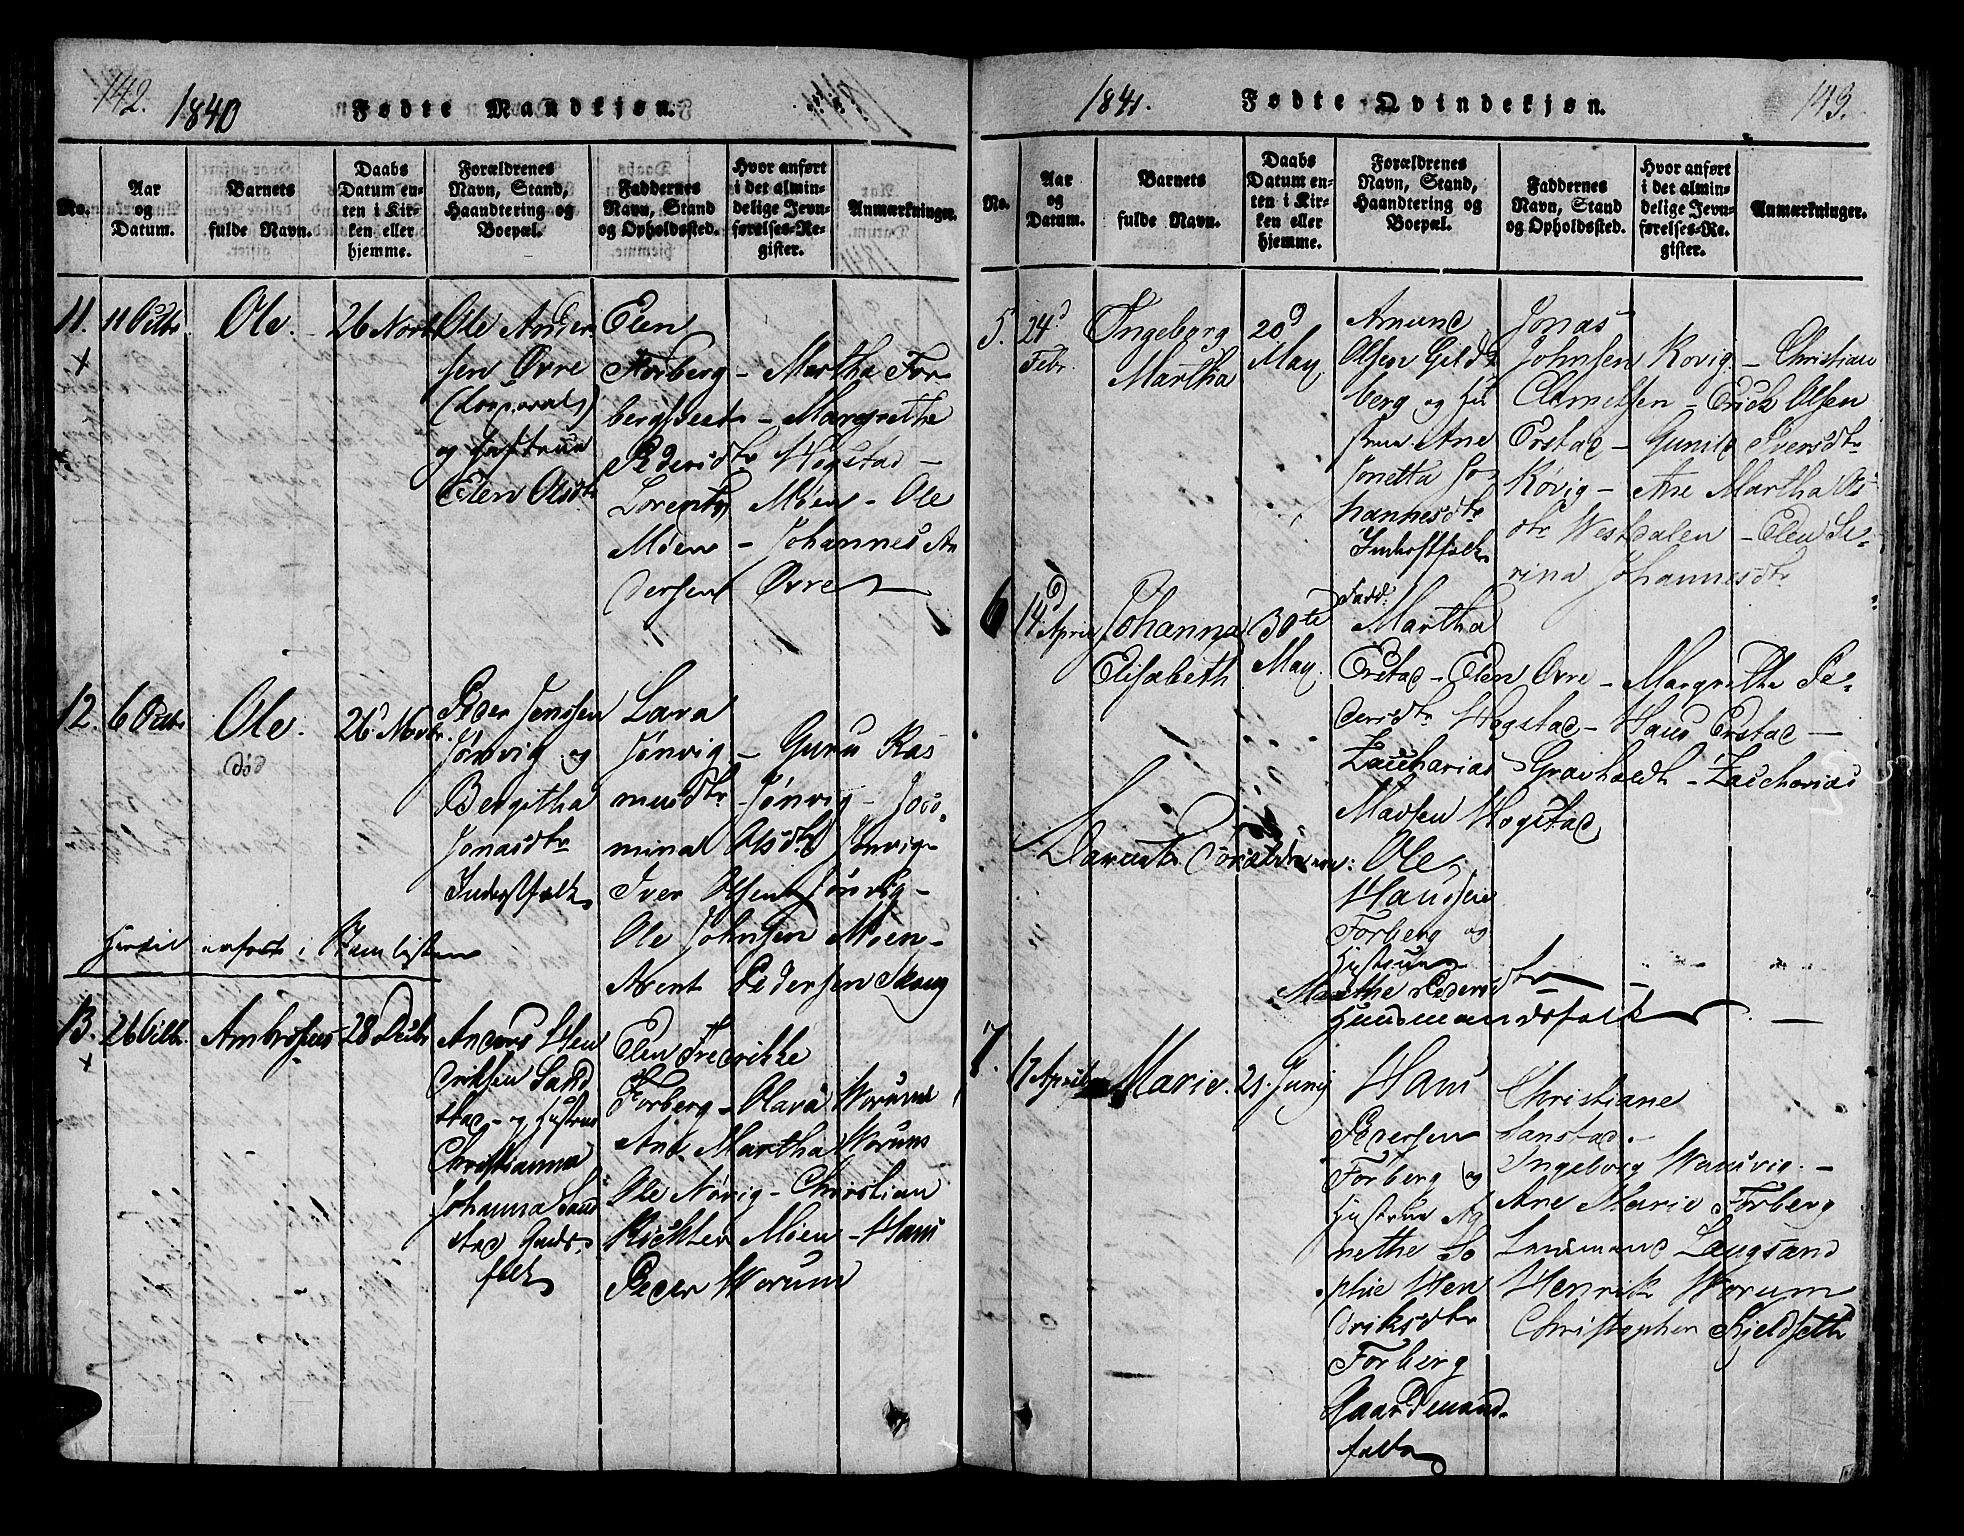 142.
1840
Fødte Mandkjøn.
No.
Aar
og
Datum.
Barnets
fulde Navn.
Daabs
Datum en-
ten i Kir-
ken eller
hjemme.
Forældrenes
Navn, Stand,
Haandtering og
Boepæl.
Faddernes
Navn, Stand
og Opholdssted.
Hvor anført
i det almin-
delige Jevn-
førelses-Re-
gister.
Anmærkninger.
11.
11 Octbr
Ole.
26 Novbr
Ole Ander-
sen Øvre
(Corporals)
og Hustrue
Elen Olsdtr
Elen
Forberg – Martha For
bergseet – Margrethe
Pedersdtr Hogstad –
Lorents Moen – Ole
Moen – Johannes An
dersen Øvre
12.
6 Octbr
Ole.
død
26 d Novbr.
Peder Jenssen
Jønvig og
Bergitha
Jonasdtr
Inderstfolk
Lava
Jønvig – Guru Ras
musdtr Jønvig –
mina Olsdtr Jønvig
Iver Olsen Jønvig –
Ole Johnsen Moen –
Arent Pedersen Skoug
Hertil anført i
13.
26 Octbr.
Ambrosius
28 Decbr
Anders Hen
driksen Sand
stad – og Hustrue
Christianna
Johanna Sand
stad Gaards
folk
Elen Fredrikke
Forberg – Olava Worum
Ane Martha Worum
Ole Nøvig – Christian
Richter Moen – Hans
Peder Worum
1841.
Fødte Qvindekjøn.
143.
No.
Aar
og
Datum.
Barnets
fulde Navn.
Daabs
Datum en-
ten i Kir-
ken eller
hjemme.
Forældrenes
Navn, Stand,
Haandtering og
Boepæl.
Faddernes
Navn, Stand
og Opholdssted.
Hvor anført
i det almin-
delige Jevn-
førelses-Re-
gister.
Anmærkninger.
5.
24 d
Febr.
Ingeborg
Martha
20 d
May.
Amund
Olsen Gild
berg og Hu
strue Ane
Jonetta Jo
hannesdtr
Inderstfolk
Jonas
Johnsen Rovig – Christian
Clemetsen – Erich Olsen
Erstad – Gunild Iversdtr
Røvig – Ane Martha Ols
dtr Westdalen – Elen Se-
rina Johannesdtr
6
14 d April
Johanna
Elisabeth
30te
May.
Fadd:
Martha
Erstad – Elen Øvre – Margrethe Pe-
dersdtr Hogstad – Hans Erstad –
Zaccharias Gravholdt – Zaccharias
Madsen Hogstad
Barnets Forældre ere: Ole
Hanssen
Forberg og
Hustrue
Marthe Pedersdtr
Huusmandsfolk
7.
17 April
Marie.
21. Junij
Hans
Pedersen
Forberg og
Hustrue Ag
nethe So
phie Hen
driksdtr
Forberg
Gaardmand-
folk
Christiane
Sanstad –
Ingeborg Wansvig –
Ane Marie Forberg
Lensmand Langsand
Henrik Worum
Christopher Kjeldseth